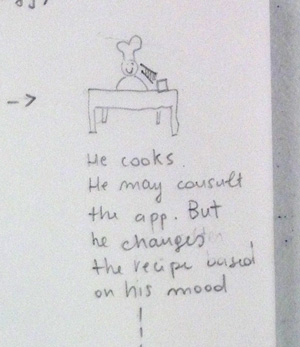 He cooks.
He may consult
the app. But
he changes
the recipe based
on his mood